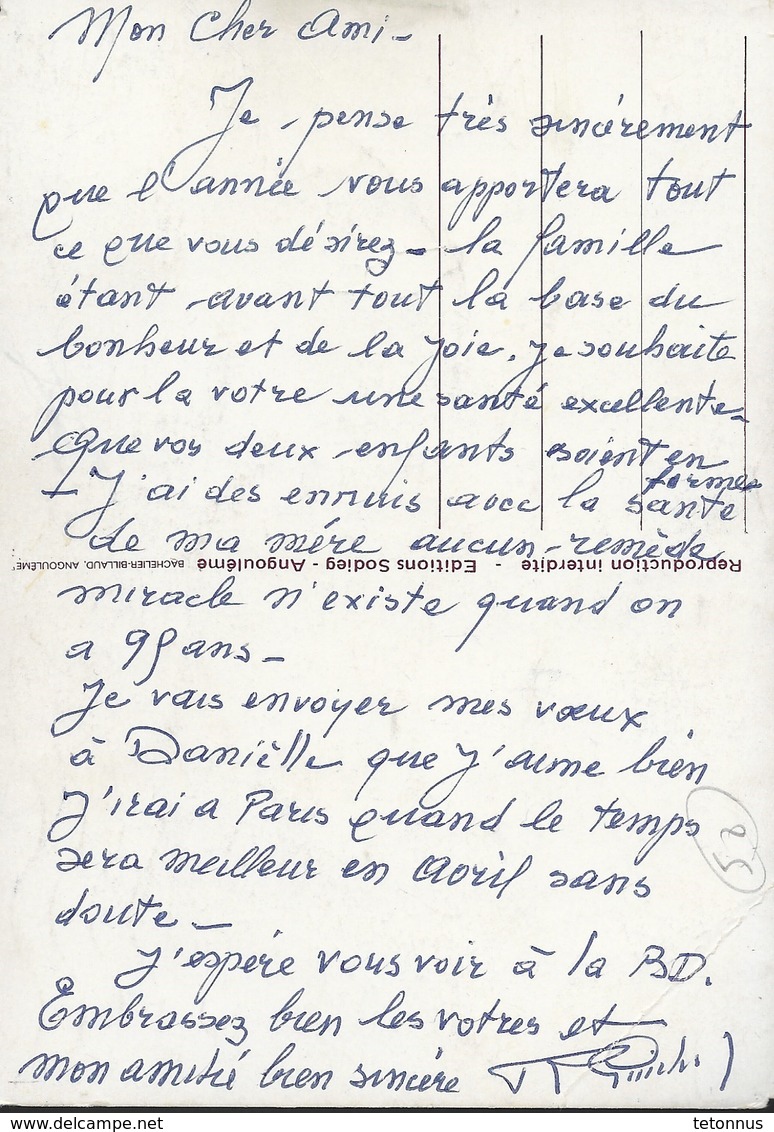 Mon Cher Ami -
Je pense très sincérement
que l'année vous apportera tout
ce que vous désirez - la famille
étant avant tout la base du
bonheur et de la joie. je souhaite
pour la votre une santé excellente -
Que vos deux enfants soient en
forme
- J'ai des ennuis avec la santé
de ma mére aucun remède
Reproduction interdite - Editions Sodieg - Angoulême
BACHELIER-BILLAUD, ANGOULEME
miracle n'existe quand on
a 99 ans -
Je vais envoyer mes vœux
à Danièlle que j'aime bien
J'irai a Paris quand le temps
sera meilleur en Avril sans
52
doute -
J'espére vous voir à la BD.
Embrassez bien les votres et
mon amitié bien sincère
tetonnus
delcampe.net